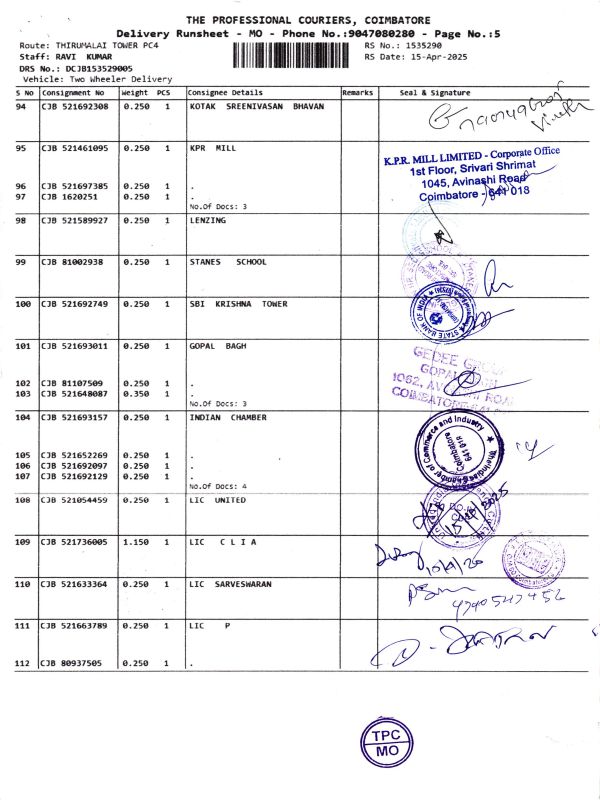 THE PROFESSIONAL COURIERS, COIMBATORE
Delivery Runsheet - MO - Phone No.:9047080280 - Page No.:5
Route: THIRUMALAI TOWER PC4 RS No.: 1535290
Staff: RAVI KUMAR RS Date: 15-Apr-2025
DRS No.: DCJB153529005
Vehicle: Two Wheeler Delivery
S No Consignment No Weight PCS Consignee Details Remarks Seal & Signature
94 CJB 521692308 0.250 1 KOTAK SREENIVASAN BHAVAN
95 CJB 521461095 0.250 1 KPR MILL
K.P.R. MILL LIMITED - Corporate Office
1st Floor, Srivari Shrimat
1045, Avinashi Road
Coimbatore - 641 018
96 CJB 521697385 0.250 1 .
97 CJB 1620251 0.250 1 .
No.Of Docs: 3
98 CJB 521589927 0.250 1 LENZING
99 CJB 81002938 0.250 1 STANES SCHOOL
100 CJB 521692749 0.250 1 SBI KRISHNA TOWER
STATE BANK OF INDIA
101 CJB 521693011 0.250 1 GOPAL BAGH
GEDEE
GOPAL
1062,
COIMBATORE
102 CJB 81107509 0.250 1 .
103 CJB 521648087 0.350 1 .
No.Of Docs: 3
104 CJB 521693157 0.250 1 INDIAN CHAMBER
The Indian Chamber of Commerce and Industry
Coimbatore
641 018
105 CJB 521652269 0.250 1 .
106 CJB 521692097 0.250 1 .
107 CJB 521692129 0.250 1 .
No.Of Docs: 4
108 CJB 521054459 0.250 1 LIC UNITED
109 CJB 521736005 1.150 1 LIC C L I A
110 CJB 521633364 0.250 1 LIC SARVESWARAN
111 CJB 521663789 0.250 1 LIC P
112 CJB 80937505 0.250 1 .
TPC
MO